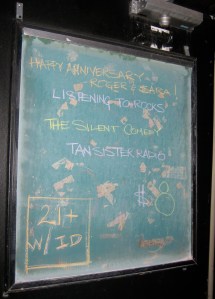 HAPPY ANNIVERSARY
ROGER & SARA!
LISTENING TO ROCKS!
THE SILENT COMEDY
TAN SISTER RADIO!
$8
21+
W/ ID